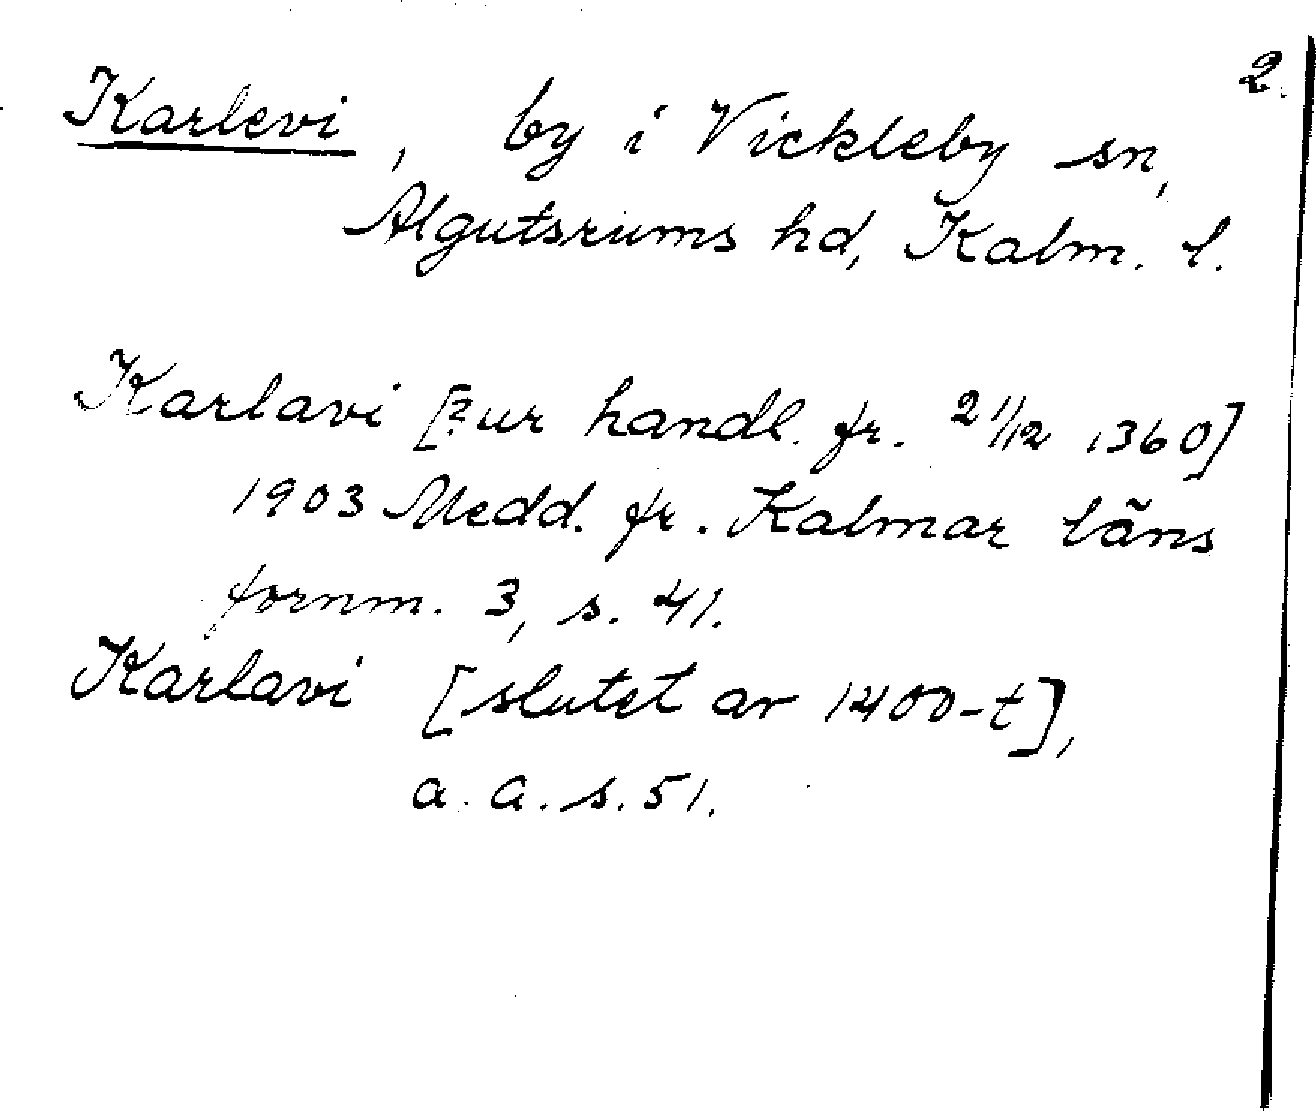 2.
Karlevi, by i Vickleby sn,
Algutsrums hd, Kalm. l.
Karlavi [? ur handl. fr. 21/12 1360]
1903 Medd. fr. Kalmar läns
fornm. 3, s. 41.
Karlavi [slutet av 1400-t],
a. a. s. 51.